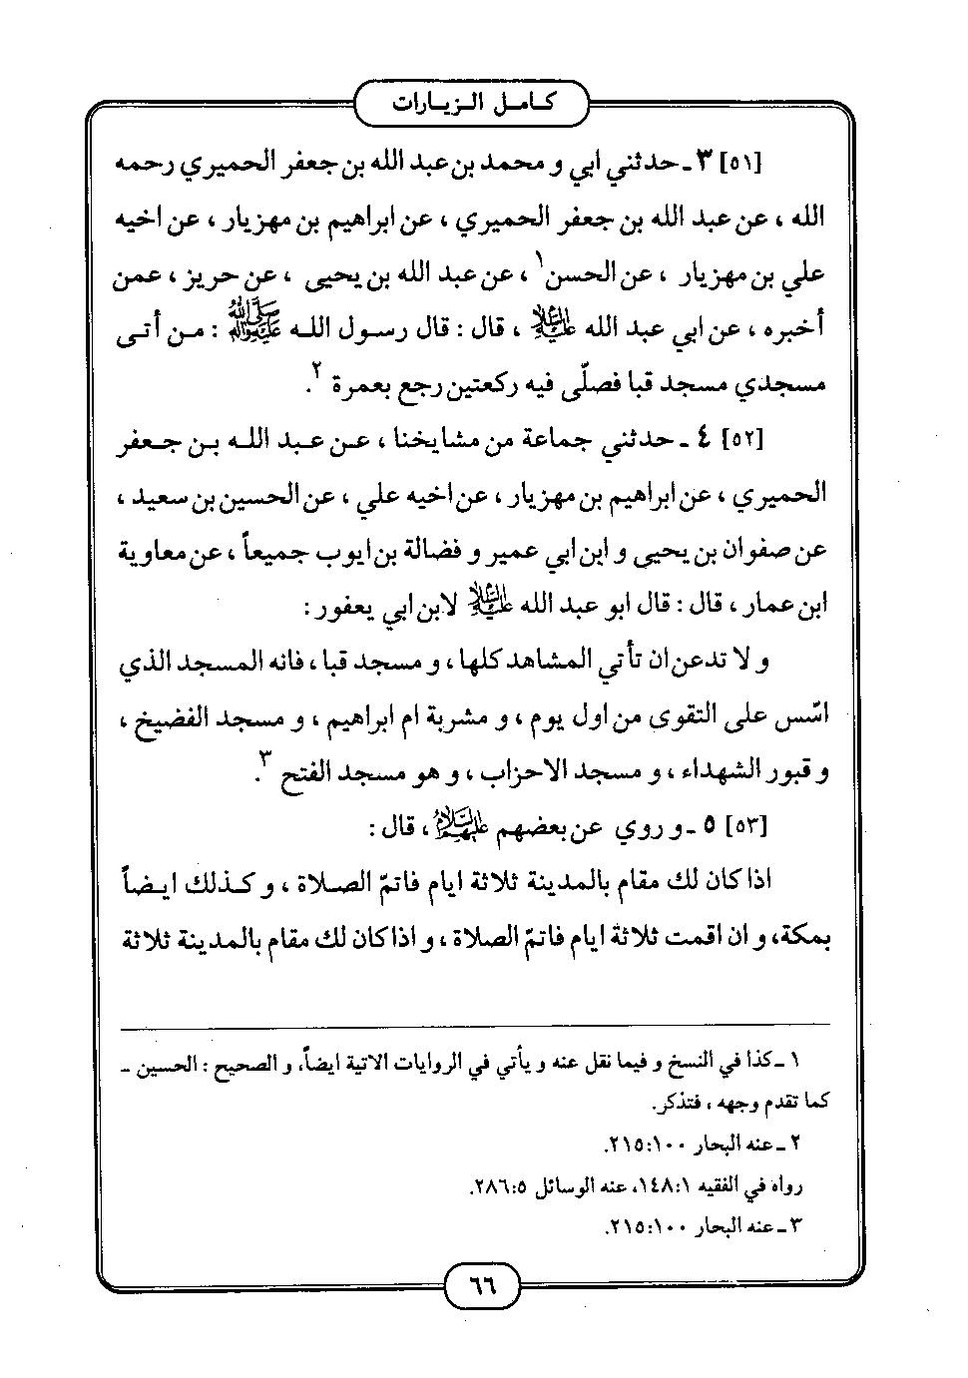 كامل الزيارات
[٥١] ٣ ـ حدثني ابي و محمد بن عبد الله بن جعفر الحميري رحمه
الله ، عن عبد الله بن جعفر الحميري ، عن ابراهيم بن مهزيار ، عن اخيه
علي بن مهزيار ، عن الحسن١ ، عن عبد الله بن يحيى ، عن حريز ، عمن
أخبره ، عن ابي عبد الله عليه السلام ، قال : قال رسول الله صلى الله عليه وآله : من أتى
مسجدي مسجد قبا فصلّى فيه ركعتين رجع بعمرة ٢.
[٥٢] ٤ ـ حدثني جماعة من مشايخنا ، عن عبد الله بن جعفر
الحميري ، عن ابراهيم بن مهزيار ، عن اخيه علي ، عن الحسين بن سعيد ،
عن صفوان بن يحيى و ابن ابي عمير و فضالة بن ايوب جميعاً ، عن معاوية
ابن عمار ، قال : قال ابو عبد الله عليه السلام لابن ابي يعفور :
و لا تدعن ان تأتي المشاهد كلها ، و مسجد قبا ، فانه المسجد الذي
اسّس على التقوى من اول يوم ، و مشربة ام ابراهيم ، و مسجد الفضيخ ،
و قبور الشهداء ، و مسجد الاحزاب ، و هو مسجد الفتح ٣.
[٥٣] ٥ ـ و روي عن بعضهم عليهم السلام ، قال :
اذا كان لك مقام بالمدينة ثلاثة ايام فاتمّ الصلاة ، و كذلك ايضاً
بمكة، و ان اقمت ثلاثة ايام فاتمّ الصلاة ، و اذا كان لك مقام بالمدينة ثلاثة
١ ـ كذا في النسخ و فيما نقل عنه و يأتي في الروايات الاتية ايضاً، و الصحيح : الحسين ـ
كما تقدم وجهه ، فتذكر.
٢ ـ عنه البحار ١٠٠:٢١٥.
رواه في الفقيه ١:١٤٨، عنه الوسائل ٥:٢٨٦.
٣ ـ عنه البحار ١٠٠:٢١٥.
٦٦